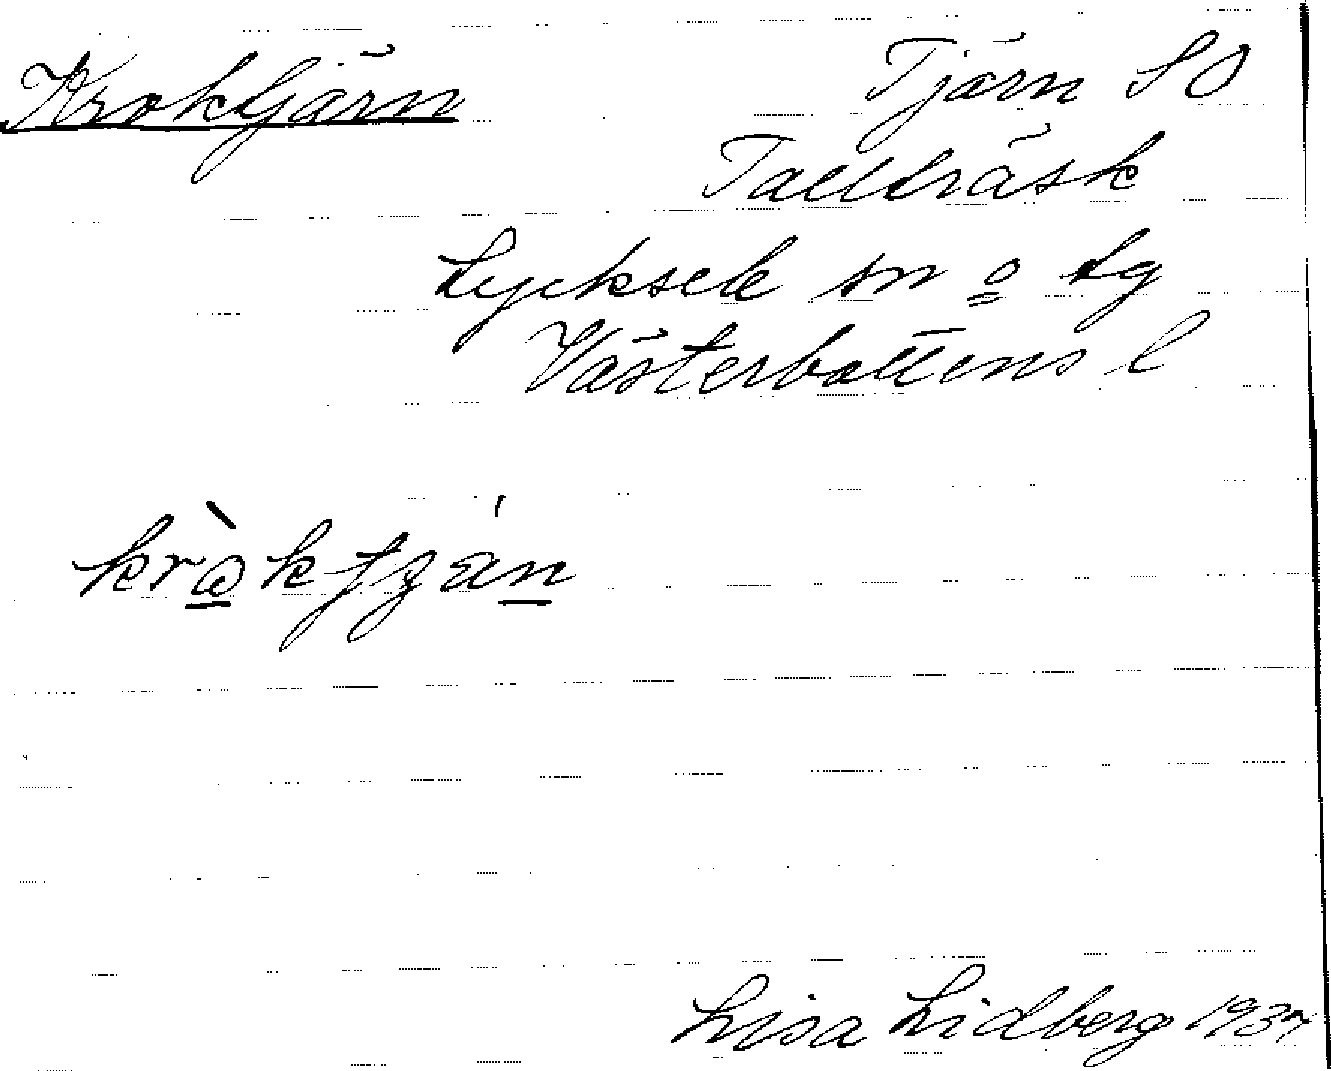 Kroktjärn
Tjärn SO
Tallträsk
Lycksele sn o lg
Västerbottens l
Lisa Lidberg 1937